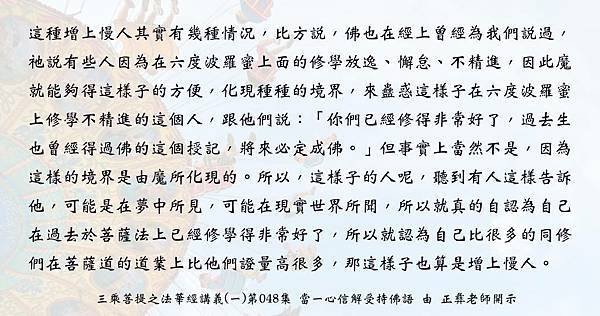 這種增上慢人其實有幾種情況，比方說，佛也在經上曾經為我們說過，
祂說有些人因為在六度波羅蜜上面的修學放逸、懈怠、不精進，因此魔
就能夠得這樣子的方便，化現種種的境界，來蠱惑這樣子在六度波羅蜜
上修學不精進的這個人，跟他們說：「你們已經修得非常好了，過去生
也曾經得過佛的這個授記，將來必定成佛。」但事實上當然不是，因為
這樣的境界是由魔所化現的。所以，這樣子的人呢，聽到有人這樣告訴
他，可能是在夢中所見，可能在現實世界所聞，所以就真的自認為自己
在過去於菩薩法上已經修學得非常好了，所以就認為自己比很多的同修
們在菩薩道的道業上比他們證量高很多，那這樣子也算是增上慢人。
三乘菩提之法華經講義(一)第048集 當一心信解受持佛語 由 正彝老師開示